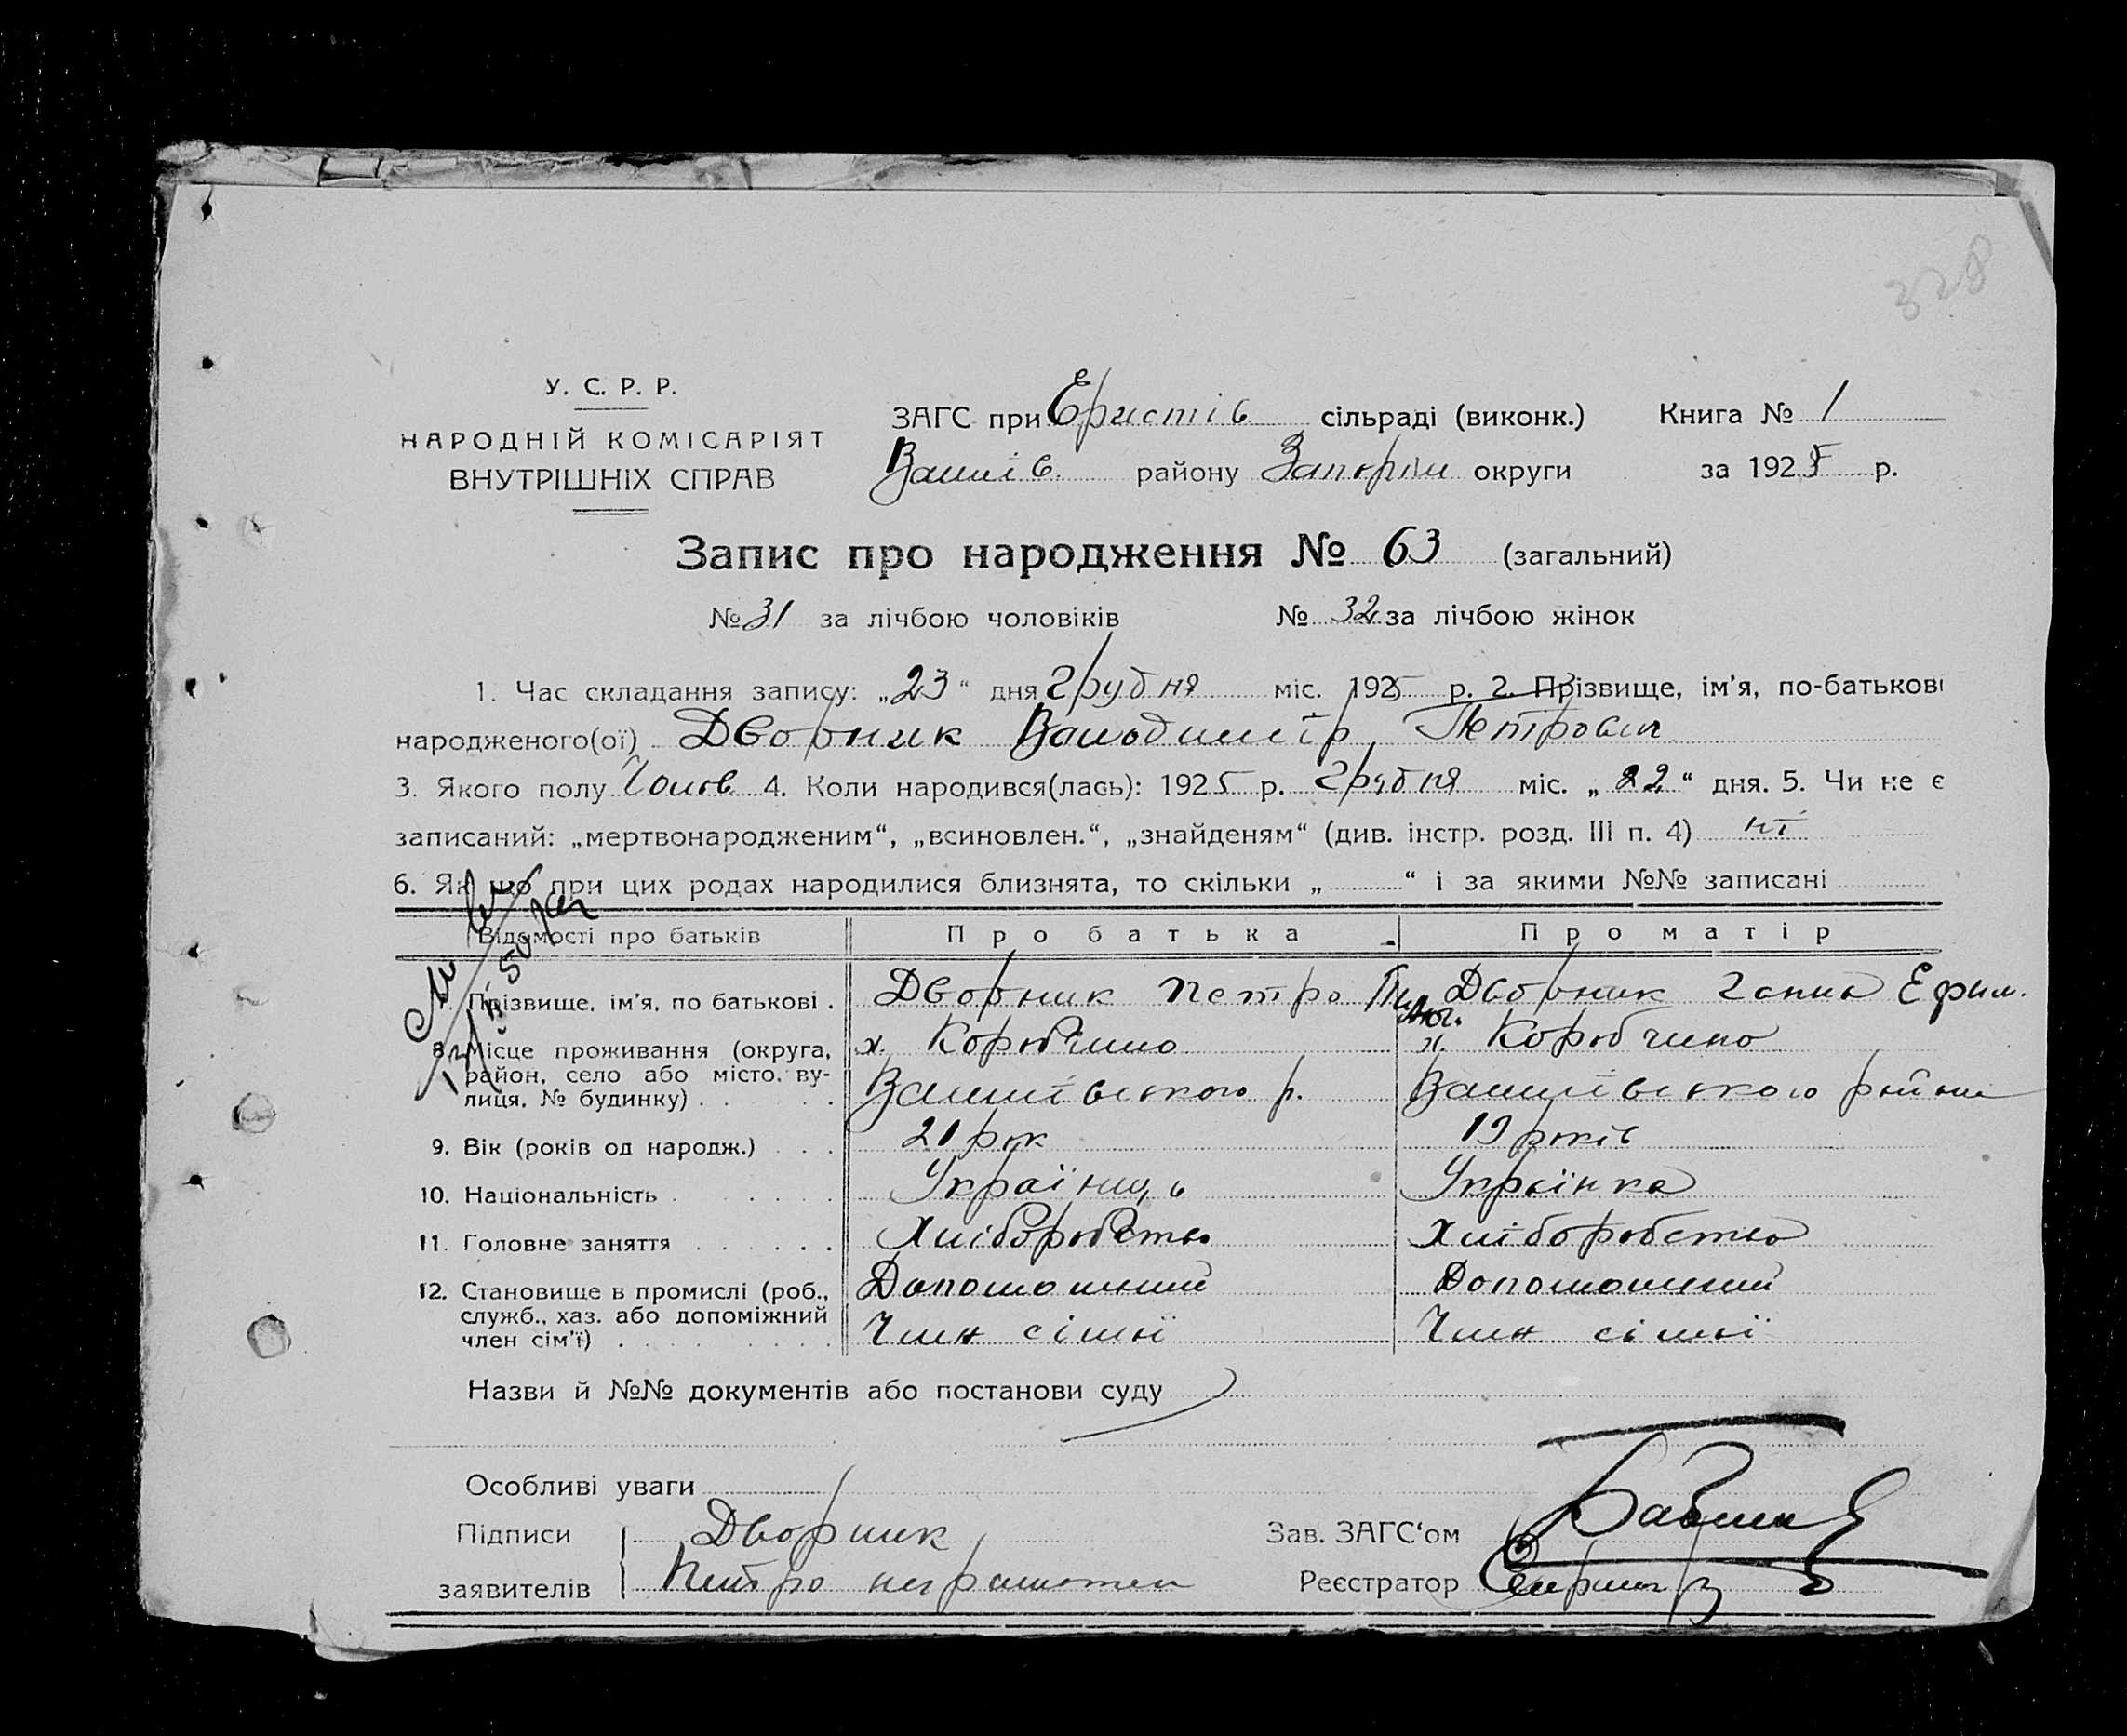 328
У. С. Р. Р.
НАРОДНІЙ КОМІСАРІЯТ
ВНУТРІШНІХ СПРАВ
ЗАГС при Еристів сільраді (виконк.) Книга № 1
району Запоріж округи за 1925 р.
Запис про народження № 63 (загальний)
№ 31 за лічбою чоловіків № 32 за лічбою жінок
1. Час складання запису: „23“ дня Грудня міс. 1925 р. 2. Прізвище, ім'я, по-батькові
народженого(ої) Дворник Володимір Петрович
3. Якого полу Чолов. 4. Коли народився(лась): 1925 р. Грудня міс. „22“ дня. 5. Чи не є
записаний: „мертвонародженим“, „всиновлен.“, „знайденям“ (див. інстр. розд. III п. 4) ні
6. Як що при цих родах народилися близнята, то скільки „ “ і за якими №№ записані
Відомості про батьків Про батька Про матір
7. Прізвище, ім'я, по батькові . Дворник Петро Дворник Ганна Ефим.
8. Місце проживання (округа, район, село або місто, вулиця, № будинку) х. Коробчино х. Коробчино
р. району
9. Вік (років од народж.) 21 рок 19 років
10. Національність Українець Українка
11. Головне заняття Хліборобство Хліборобство
12. Становище в промислі (роб., Допоможний Допоможний
служб., хаз. або допоміжний
член сім'ї) Член сімьї Член сімьї
Назви й №№ документів або постанови суду
Особливі уваги
Підписи Дворник Зав. ЗАГС‘ом
заявителів Петро неграмотен Реєстратор